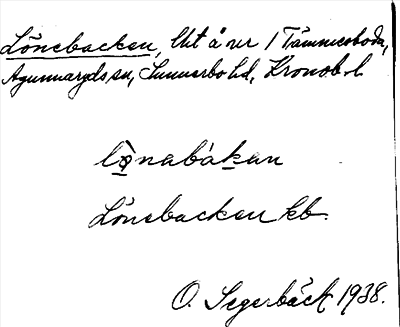 Lönebacken, Ut å ur 1 Tämnesboda,
Agunnaryds sn, Sunnerbo hd, Kronob. l.
lö̀nabákan
Lönebacken kb.
O. Segerbäck 1938.